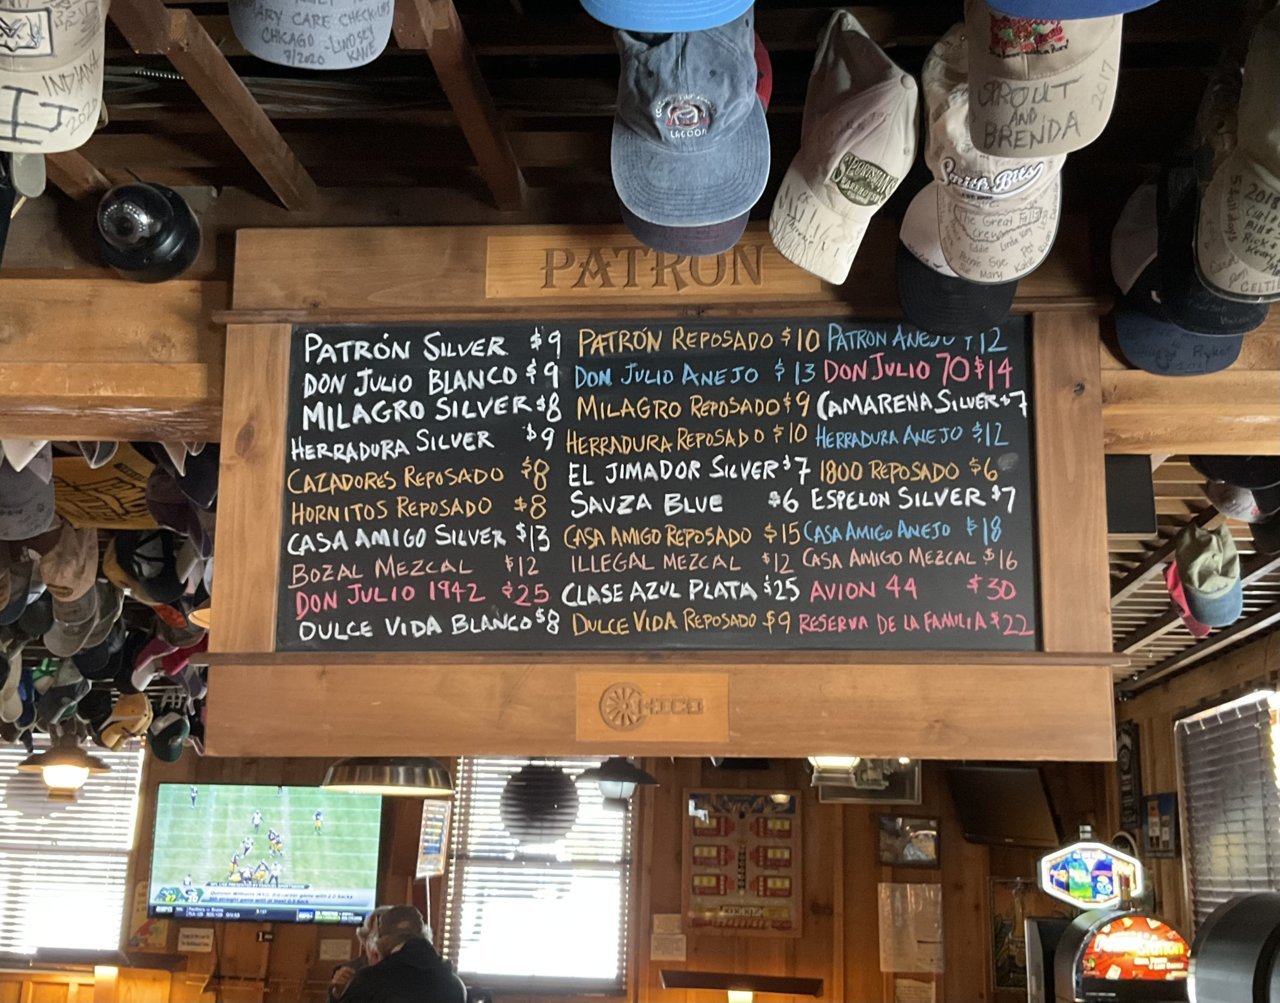 INDIANA
2020
ARY CARE CHECK-UPS
CHICAGO - LINDSEY
7/2020 KANE
LAGOON
SPORTSMAN'S
WAREHOUSE
SPROUT
AND
BRENDA
2017
Smith Bits
The Great Falls
Crew
PATRÓN
PATRÓN SILVER $9 PATRÓN REPOSADO $10 PATRON ANEJO $12
DON JULIO BLANCO $9 DON JULIO ANEJO $13 DON JULIO 70 $14
MILAGRO SILVER $8 MILAGRO REPOSADO $9 CAMARENA SILVER $7
HERRADURA SILVER $9 HERRADURA REPOSADO $10 HERRADURA ANEJO $12
CAZADORES REPOSADO $8 EL JIMADOR SILVER $7 1800 REPOSADO $6
HORNITOS REPOSADO $8 SAUZA BLUE $6 ESPELON SILVER $7
CASA AMIGO SILVER $13 CASA AMIGO REPOSADO $15 CASA AMIGO ANEJO $18
BOZAL MEZCAL $12 ILLEGAL MEZCAL $12 CASA AMIGO MEZCAL $16
DON JULIO 1942 $25 CLASE AZUL PLATA $25 AVION 44 $30
DULCE VIDA BLANCO $8 DULCE VIDA REPOSADO $9 RESERVA DE LA FAMILIA $22
CHICO